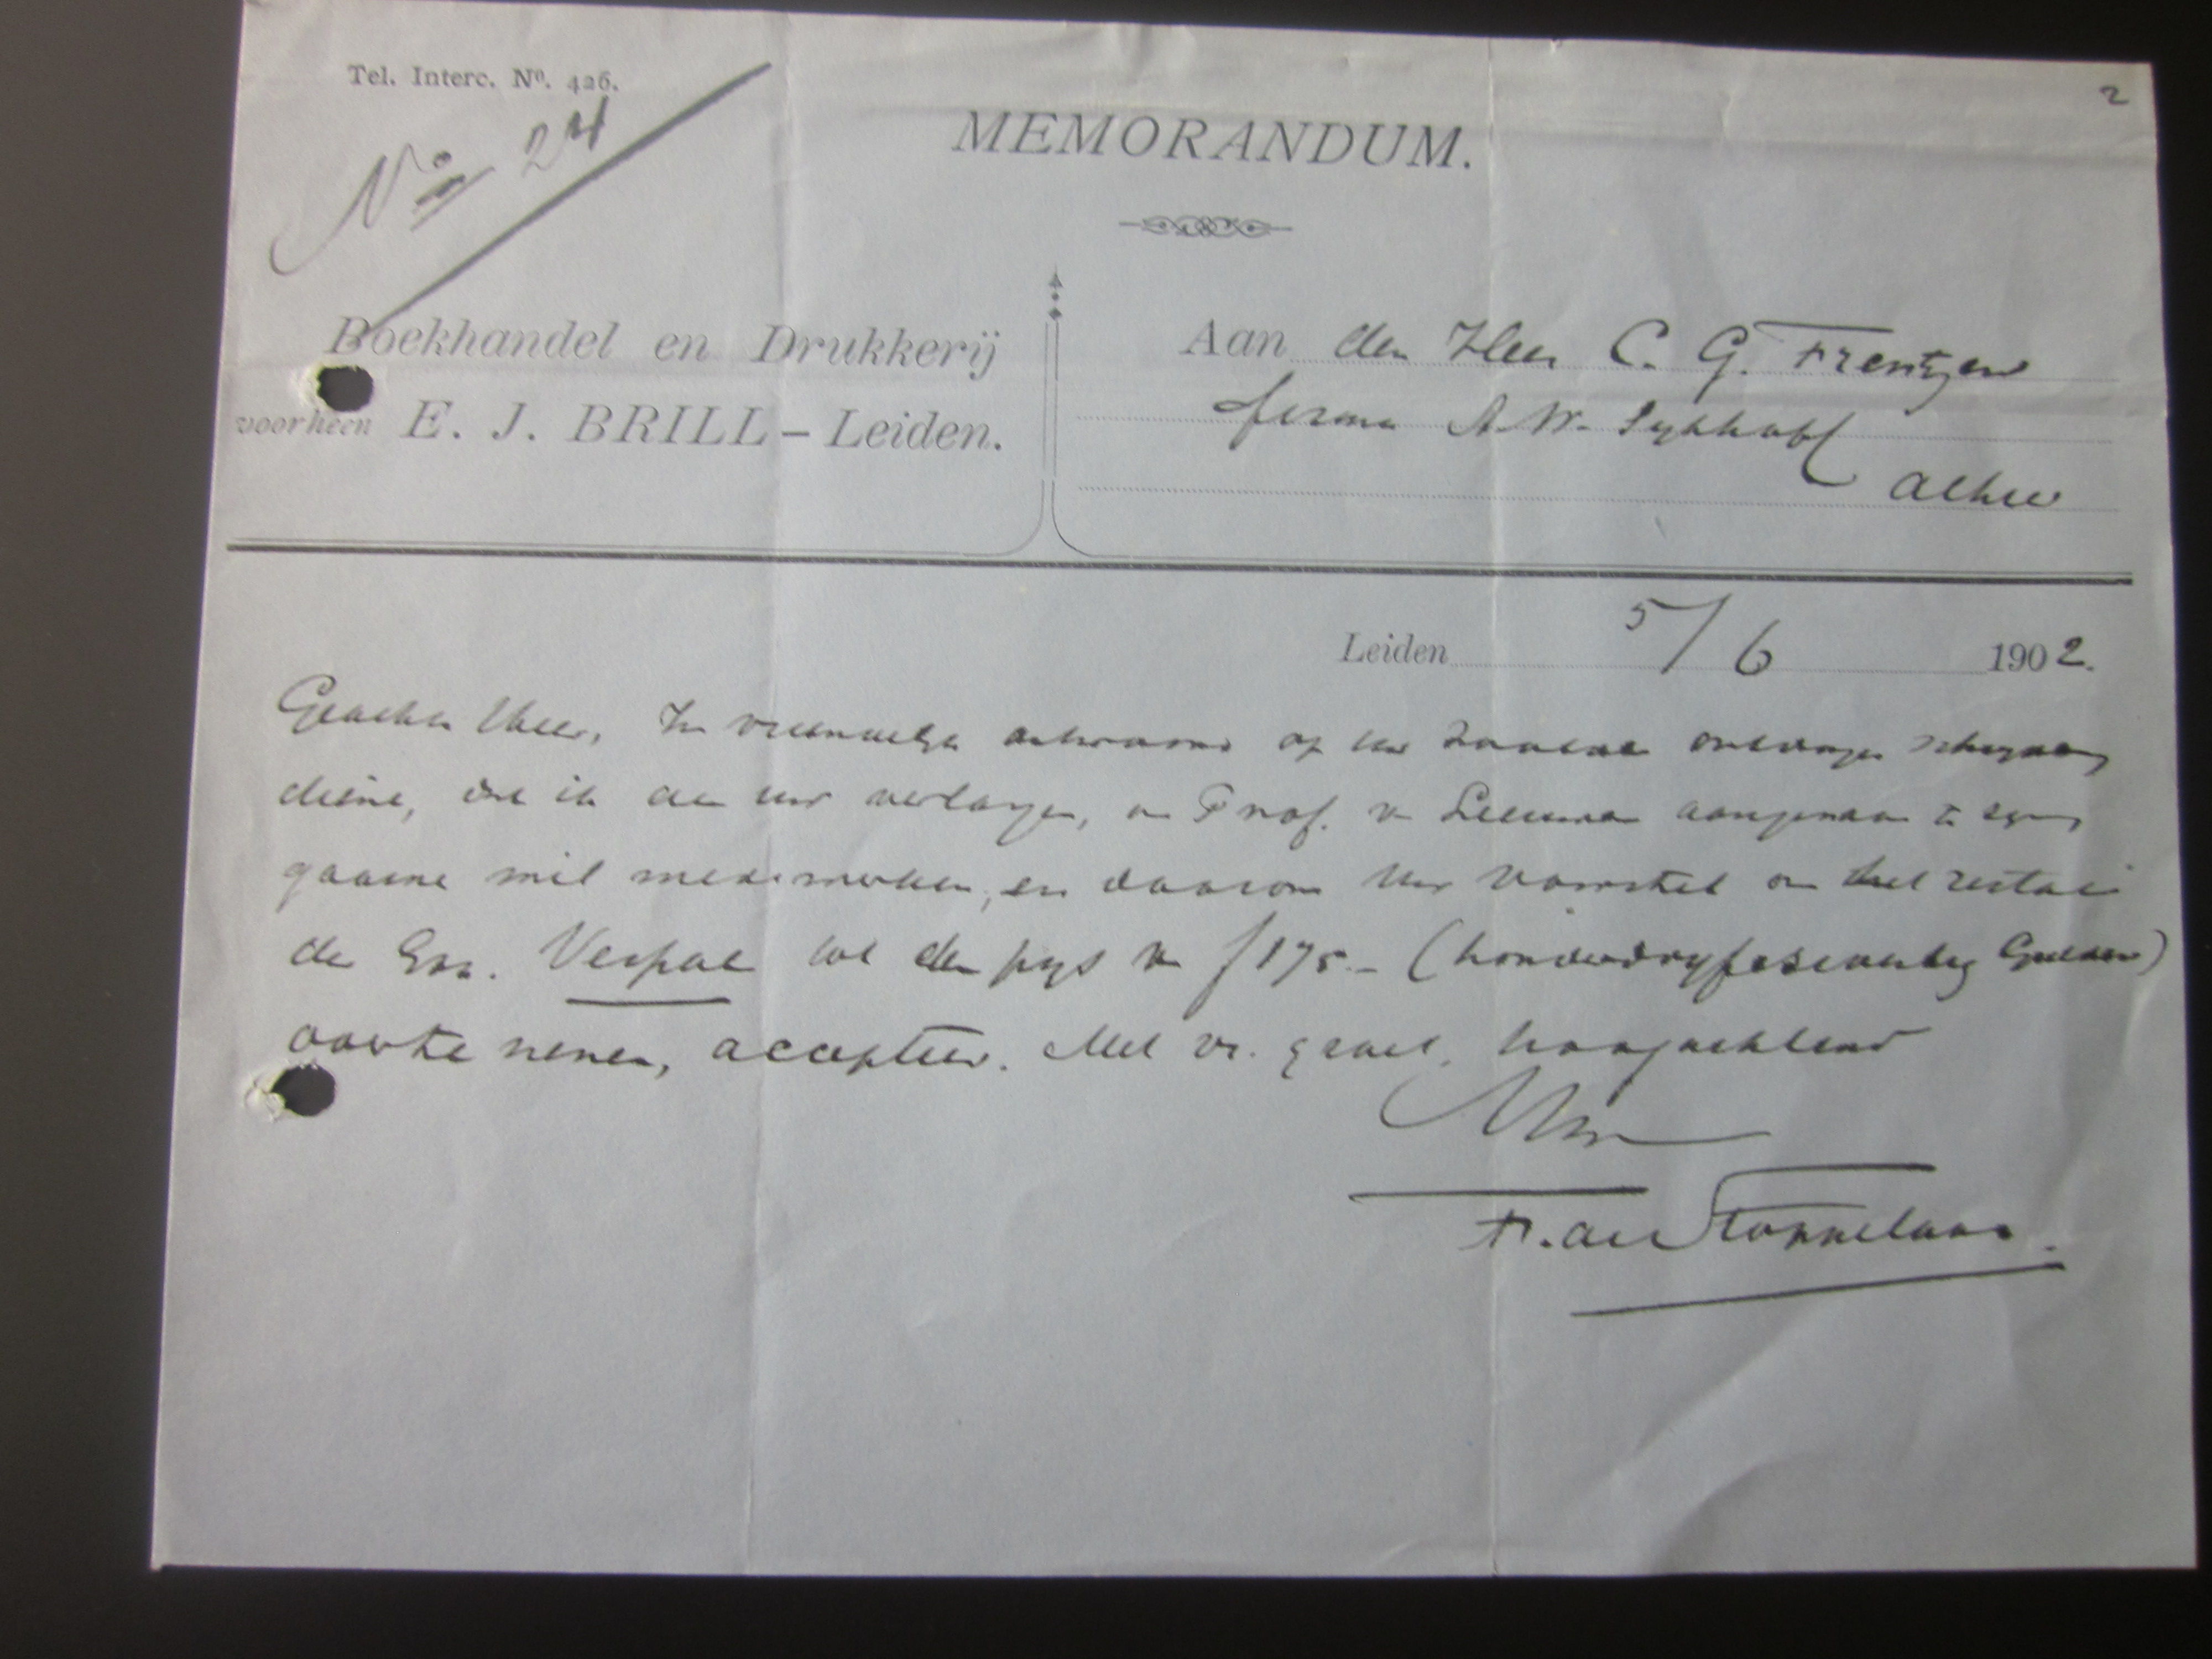 Tel. Interc. Nº. 426.
2
Nº 24
MEMORANDUM.
Boekhandel en Drukkerij
voorheen E. J. BRILL – Leiden.
Aan den Heer C. G. Frentzen
firma A. W. Sijthoff
alhier
Leiden 5/6 1902.
Geachte Heer, In antwoord op Uw ontvangen
diene, dat ik aan Uw verlangen, om Prof. v. Leeuwen aangenaam te zijn,
gaarne wil medewerken, en daarom Uw voorstel om het restant
de Exx. Vespae tot den prijs van f 175.– (honderdvyfenzeventig Gulden)
over te nemen, accepteer. Met vr. groet, hoogachtend
Uw
F. de Stoppelaar.